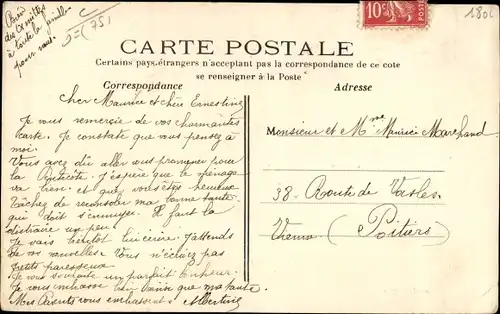 Bien
des amitiés
à toute la famille
pour nous
(75)
10c
180c
CARTE POSTALE
Certains pays étrangers n'acceptant pas la correspondance de ce coté
se renseigner à la Poste
Correspondance
Adresse
Cher Maurice et chère Ernestine
Je vous remercie de vos charmantes
carte. Je constate que vous pensez à
moi.
Vous avez dû aller vous promener pour
la Pentecôte. J'espère que le ménage
va bien et que vous êtes heureux
Tâchez de reconsoler ma bonne tante
qui doit s'ennuyer. Il faut la
distraire un peu.
Je vais bientôt lui écrire. J'attends
de vos nouvelles. Vous n'écrivez pas
petits paresseux
Je vous souhaite un parfait bonheur.
Je vous embrasse bien ainsi que ma tante.
Mes Parents vous embrassent Albertine
Monsieur et Mme Maurice Marchand
38 Route de Vasles
Vienne (Poitiers)